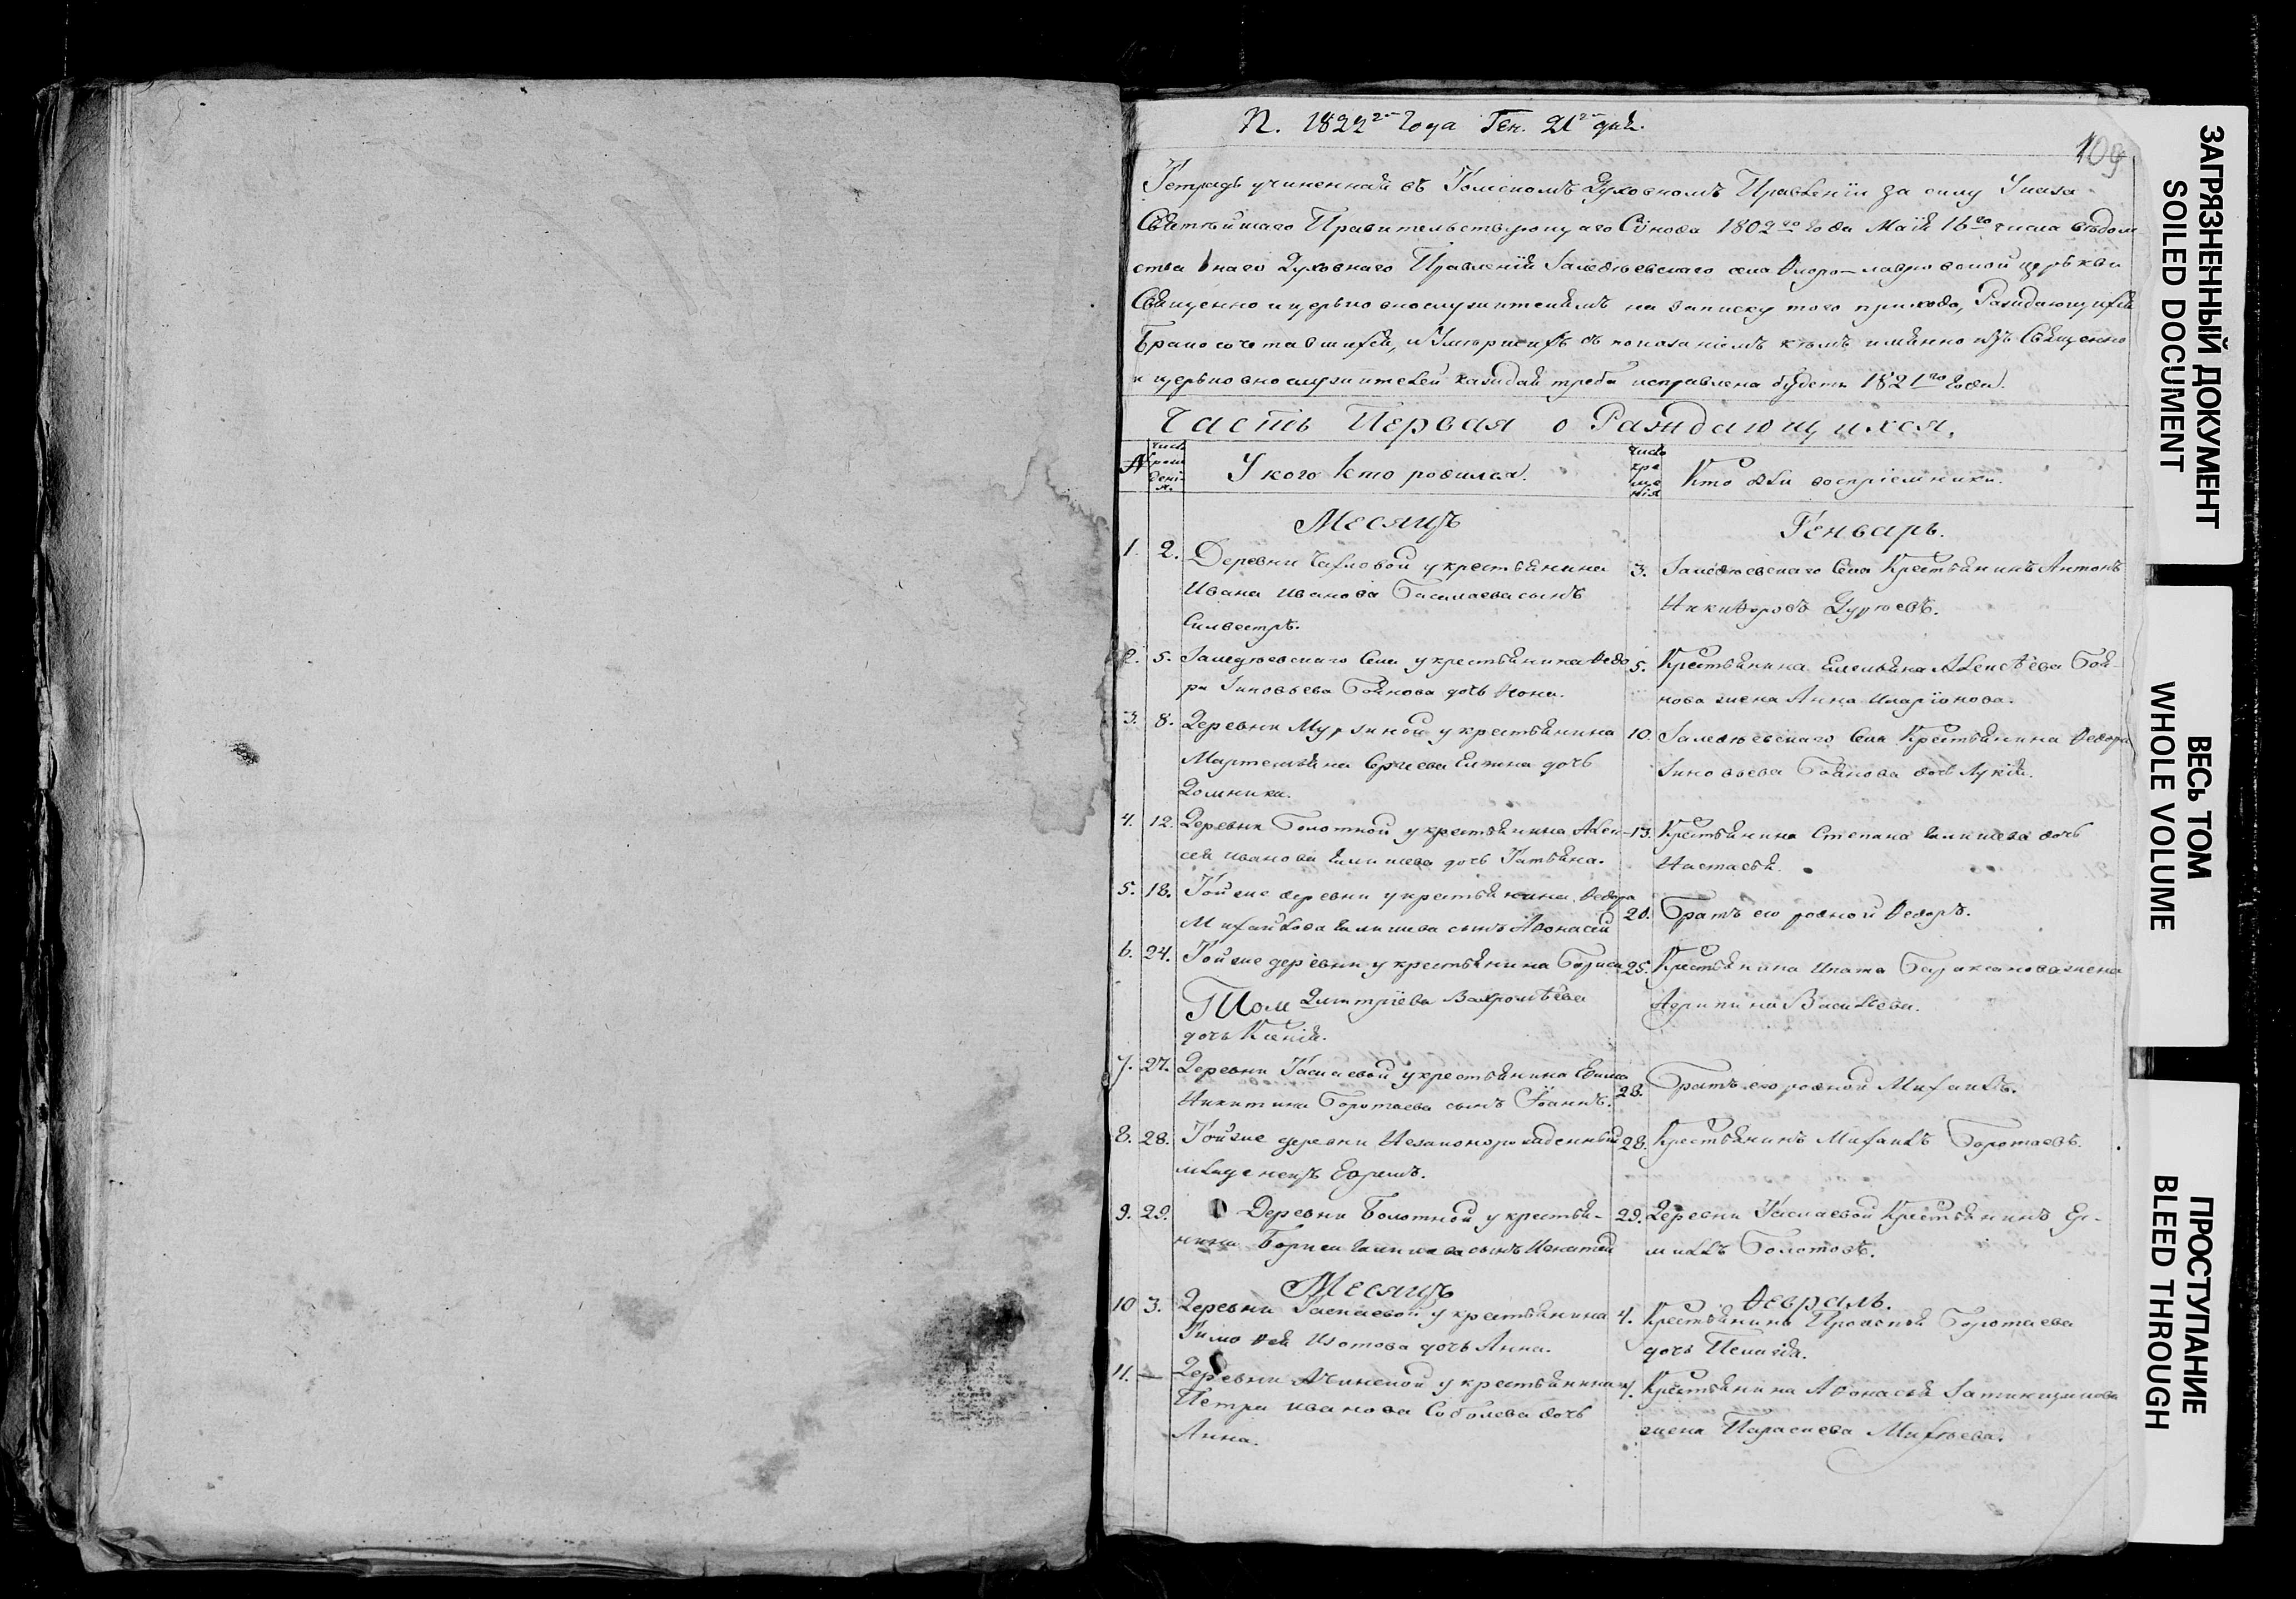 П. 1822го Года Ген. 21го дня.
109
Тетрадь учиненная въ Томскомъ Духовномъ Правленіи за силу Указа
Святѣйшаго Правительствующаго Сѵнода 1802го года Маія 16го числа вѣдом
ства онаго Духовнаго Правленія Заледѣевскаго села Флоро-лавровской церькви
Священно и церьковнослужителямъ на записку того прихода, Раждающихся
Бракосочетавшихся, и Умершихъ съ показаніемъ кѣмъ имянно изъ Священно
и церьковнослужителей каждая треба исправлена будетъ 1821го Года.
Часть Первая о Раждающихся.
№
число рожденія.
У кого кто родился.
число крещенія
Кто были воспріемники.
Месяцъ
Генварь.
1. 2. Деревни Чахловой у крестьянина
Ивана Иванова сынъ
Силвестръ.
3. Заледѣевскаго Села Крестьянинъ Антонъ
Никифоровъ
2. 5. Заледѣевскаго Села у крестьянина Федо
ра Зиновьева Боянова дочь
5. Крестьянина Емельяна Алексѣева Боя-
нова жена Анна Иларіонова.
3. 8. Деревни Мурзиной у крестьянина
Мартемьяна Сергиева Елгина дочь
Домника.
10. Заледѣевскаго Села Крестьянина Федора
Зиновьева Боянова дочь Лукія.
4. 12. Деревни Болотной у крестьянина Алек-
сея Иванова дочь Татьяна.
13. Крестьянина Степана дочь
Настасья.
5. 18. Той же деревни у крестьянина Федора
Михайлова сынъ Афонасей
20. Братъ его родной Федоръ.
6. 24. Той же деревни у крестьянина Бориса
Том Дмитріева Вахромѣева
дочь Ксенія.
25. Крестьянина Ипата жена
Агрипина Васильева.
7. 27. Деревни Таскаевой у крестьянина
Никитина Боротаева сынъ Іоаннъ.
28. Братъ его родной Михаилъ.
8. 28. Той же деревни Незаконорожденный
младенецъ Ефремъ.
28. Крестьянинъ Михаилъ Боротаевъ.
9. 29. Деревни Болотной у крестья-
нина Бориса сынъ Игнатей
29. Деревни Таскаевой Крестьянинъ Ер-
милъ Болотовъ.
Месяцъ
Февраль.
10 3. Деревни Таскаевой у крестьянина
Тимофея Изотова дочь Анна.
4. Крестьянина Прокопья Боротаева
дочь Пелагія.
11. — Деревни Ачинской у крестьянина
Петра Иванова Соболева дочь
Анна.
4. Крестьянина Афонасья
жена Парасковья Михѣева.
ЗАГРЯЗНЕННЫЙ ДОКУМЕНТ
SOILED DOCUMENT
ВЕСЬ ТОМ
WHOLE VOLUME
ПРОСТУПАНИЕ
BLED THROUGH